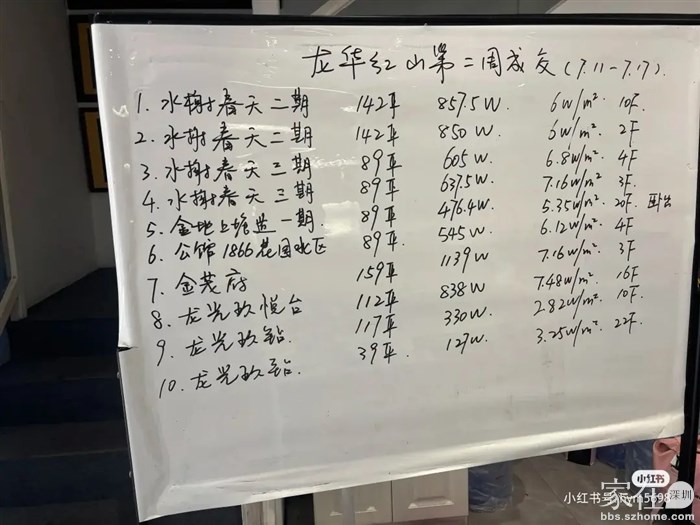 龙华红山第二周成交(7.11-7.17).
1. 水榭春天二期 142平 857.5W. 6W/m². 10F
2. 水榭春天二期 142平 850W. 6W/m². 2F
3. 水榭春天三期 89平 605W. 6.8W/m². 4F
4. 水榭春天三期 89平 637.5W. 7.16W/m². 3F.
5. 金地上塘道一期. 89平 476.4W 5.35W/m². 20F. 卧出
6. 公馆1866花园北区 89平. 545W 6.12W/m². 4F
7. 金茂府 159平 1139W 7.16W/m². 3F.
8. 龙光玖悦台 112平 838W 7.48W/m². 16F
9. 龙光玖钻. 117平 330W 2.82W/m². 10F.
10. 龙光玖钻. 39平. 127W 3.25W/m². 22F.
小红书
小红书号:
家在深圳
bbs.szhome.com